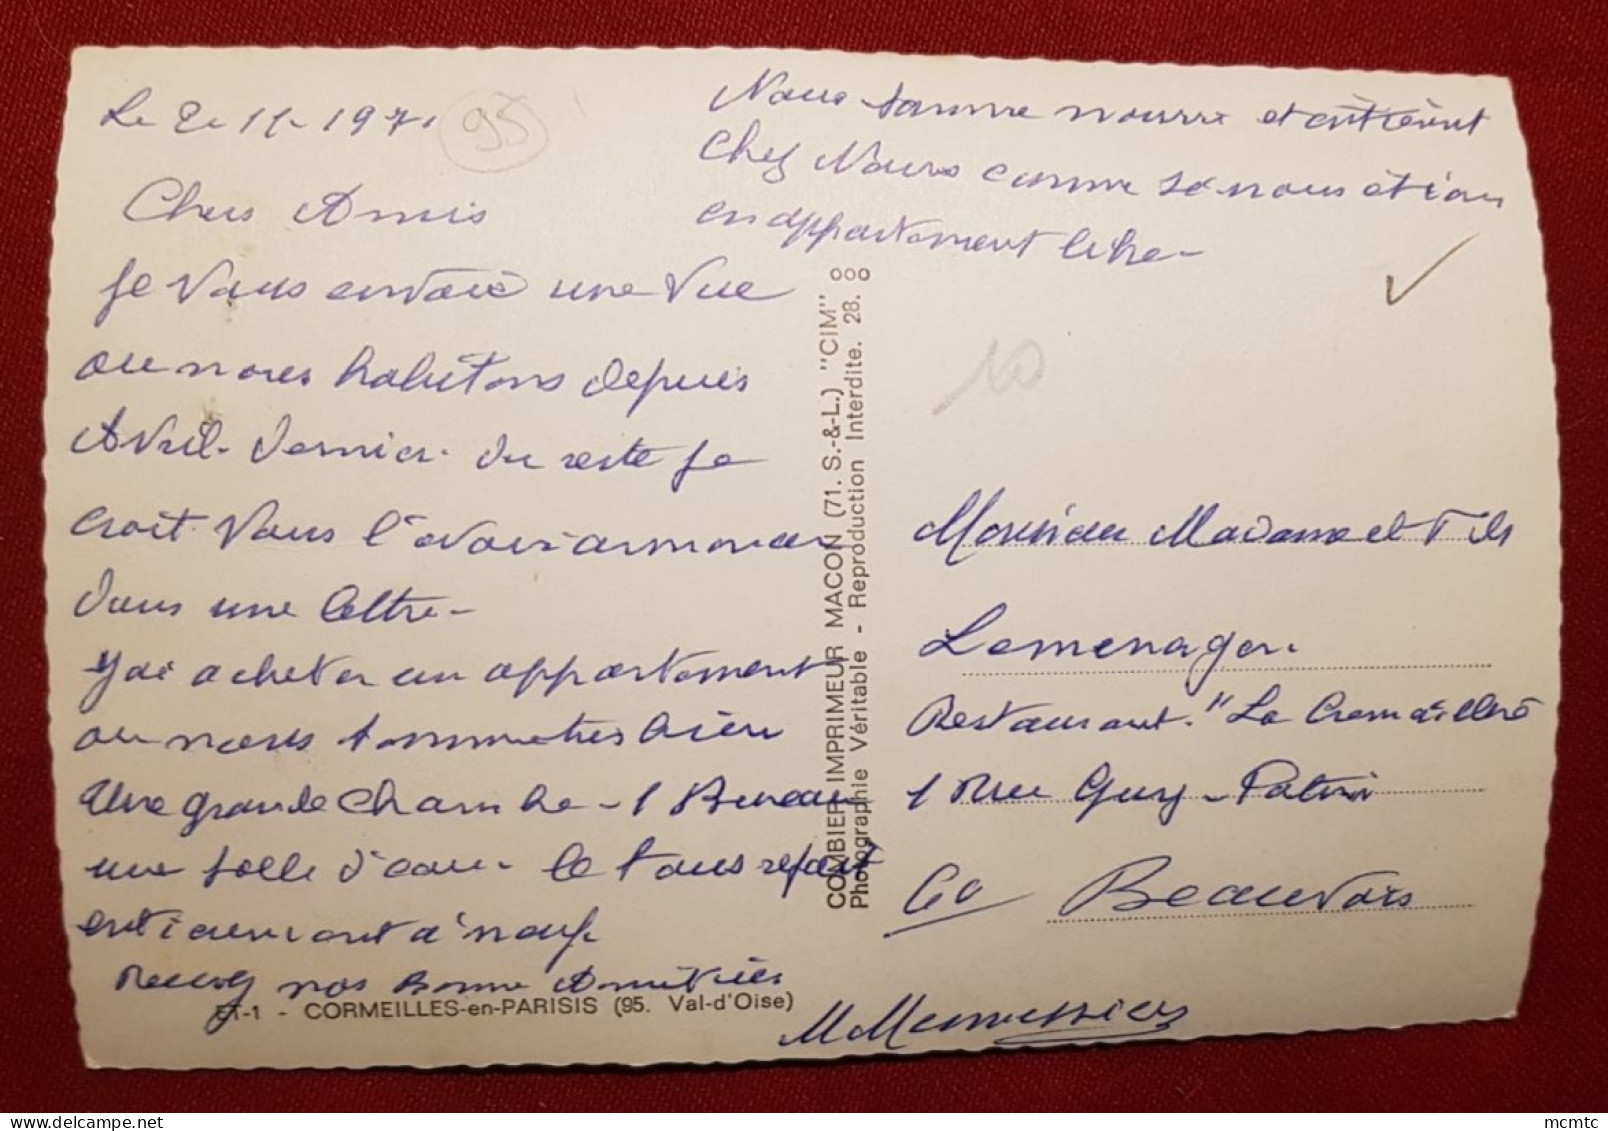 Le 2e 11 - 1971
95
Chers Amis
Je vous envoie une vue
ou nous habitons depuis
Avril - dernier. du reste je
croit vous l'avoir annoncer
dans une lettre -
j'ai acheter un appartement
ou nous sommes très bien
une grande chambre - 1 Bureau
une salle d'eau - le tous refait
entièrement à neuf
Recevez nos Bonne Amitiées
Nous somme nourri et
Chez Nous comme si nous étions
en appartement libre -
10
Monsieur Madame et Fils
Lemenager.
Restaurant. "La Cremaillère
1 Rue Guy - Patin
60 Beauvais
COMBIER IMPRIMEUR MACON (71. S.-&-L.) "CIM"
Photographie Véritable - Reproduction Interdite. 28.
ET-1 - CORMEILLES-en-PARISIS (95. Val-d'Oise)
mcmtc
delcampe.net